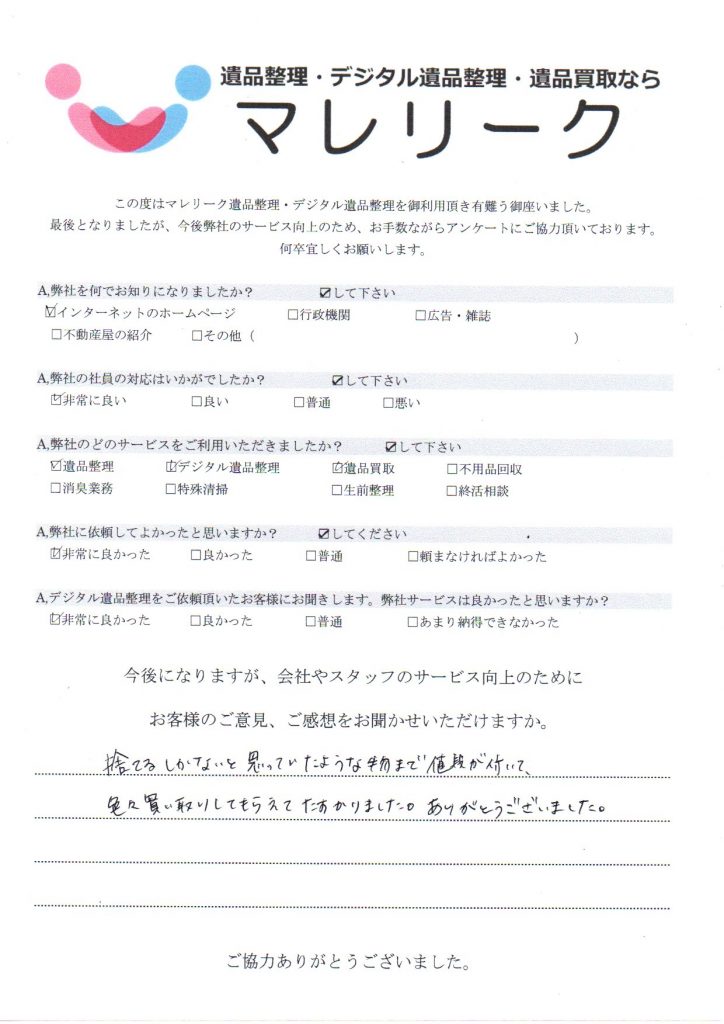 遺品整理・デジタル遺品整理・遺品買取なら
マレリーク
この度はマレリーク遺品整理・デジタル遺品整理を御利用頂き有難う御座いました。
最後となりましたが、今後弊社のサービス向上のため、お手数ながらアンケートにご協力頂いております。
何卒宜しくお願いします。
A,弊社を何でお知りになりましたか？ ☑して下さい
☑インターネットのホームページ □行政機関 □広告・雑誌
□不動産屋の紹介 □その他（ ）
A,弊社の社員の対応はいかがでしたか？ ☑して下さい
☑非常に良い □良い □普通 □悪い
A,弊社のどのサービスをご利用いただきましたか？ ☑して下さい
☑遺品整理 ☑デジタル遺品整理 ☑遺品買取 □不用品回収
□消臭業務 □特殊清掃 □生前整理 □終活相談
A,弊社に依頼してよかったと思いますか？ ☑してください
☑非常に良かった □良かった □普通 □頼まなければよかった
A,デジタル遺品整理をご依頼頂いたお客様にお聞きします。弊社サービスは良かったと思いますか？
☑非常に良かった □良かった □普通 □あまり納得できなかった
今後になりますが、会社やスタッフのサービス向上のために
お客様のご意見、ご感想をお聞かせいただけますか。
捨てるしかないと思っていたような物まで値段が付いて、
色々買い取りしてもらえてたすかりました。ありがとうございました。
ご協力ありがとうございました。